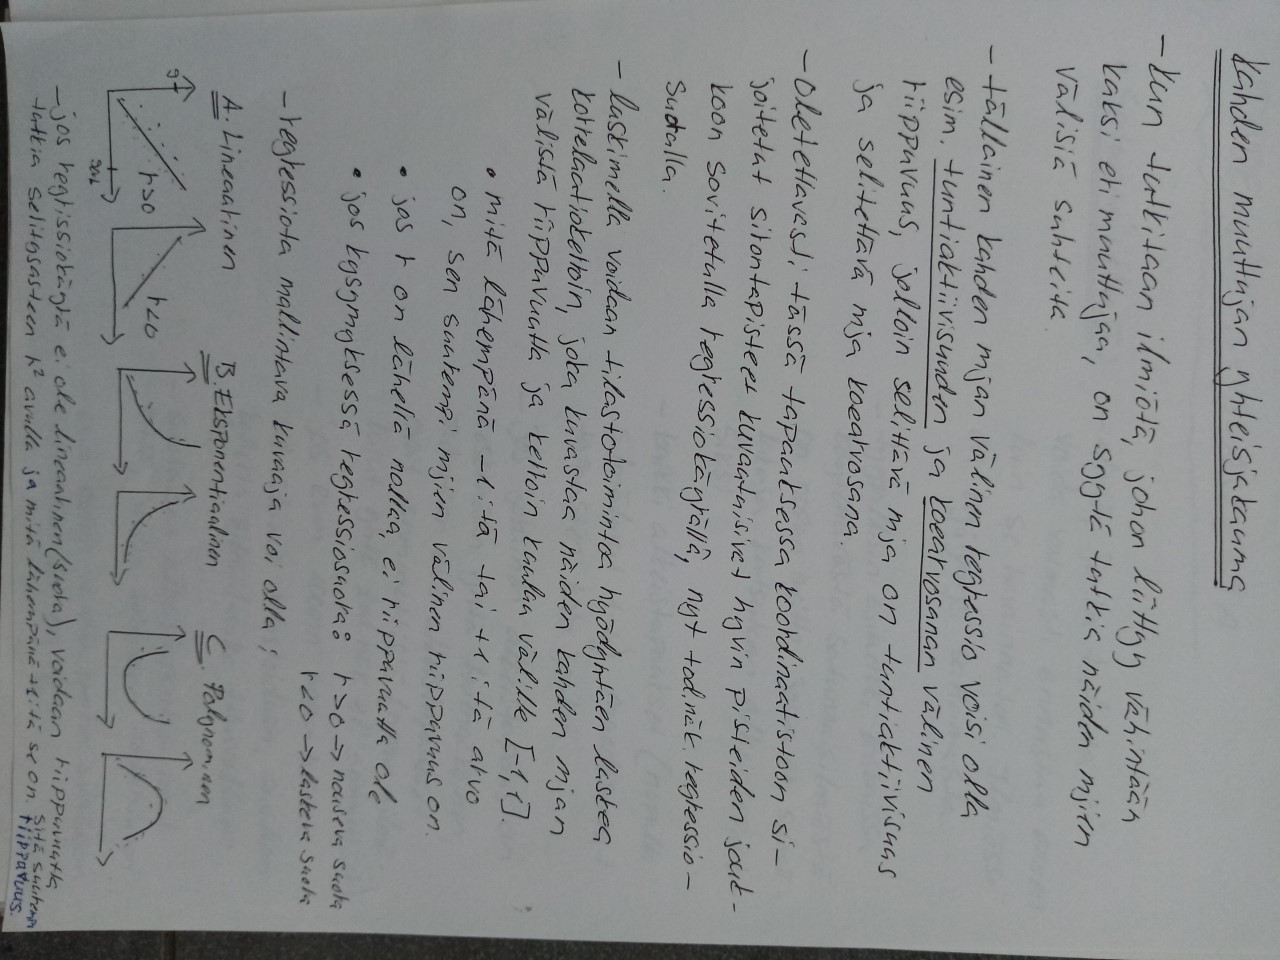 Kahden muuttujan yhteisjakauma
- Kun tutkitaan ilmiötä, johon liittyy vähintään
kaksi eri muuttujaa, on syytä tutkia näiden mjien
välisiä suhteita.
- tällainen kahden mjan välinen regressio voisi olla
esim. tuntiaktiivisuuden ja koearvosanan välinen
riippuvuus, jolloin selittävä mja on tuntiaktiivisuus
ja selitettävä mja koearvosana.
- Oletettavasti tässä tapauksessa koordinaatistoon si-
joitetut sirontapisteet kuvautuisivat hyvin pisteiden jouk-
koon sovitetulla regressiokäyrällä, nyt todnäk. regressio-
suoralla.
- laskimella voidaan tilastotoimintoa hyödyntäen laskea
korrelaatiokerroin, joka kuvastaa näiden kahden mjan
välistä riippuvuutta ja kerroin kuuluu välille [-1, 1].
• mitä lähempänä -1:tä tai +1:tä arvo
on, sen suurempi mjien välinen riippuvuus on.
• jos r on lähellä nollaa, ei riippuvuutta ole
• jos kysymyksessä regressiosuora: r>0 → nouseva suora
r<0 → laskeva suora
- regressiota mallintava kuvaaja voi olla:
A. Lineaarinen B. Eksponentiaalinen C. Polynominen
r>0 r<0
- jos regressiokäyrä ei ole lineaarinen (suora), voidaan riippuvuutta
tutkia selitysasteen r² avulla ja mitä lähempänä +1:tä se on, sitä suurempi
riippuvuus.